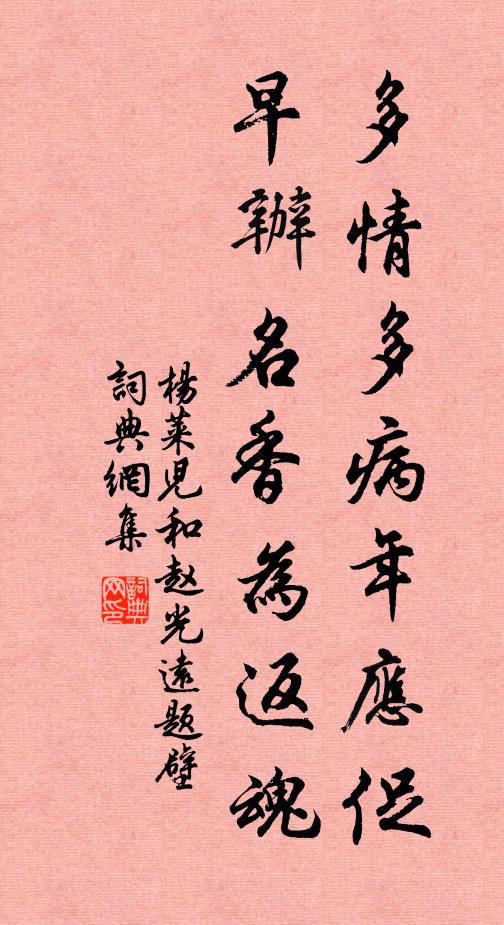 多情多病年應促
早辦名香為返魂
楊萊児和赵光遠題壁
詞典網集
詞典網印